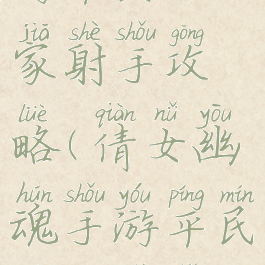 jiā shè shǒu gōng
家射手攻
lüè qiàn nǚ yōu
略(倩女幽
hún shǒu yóu píng mín
魂手游平民